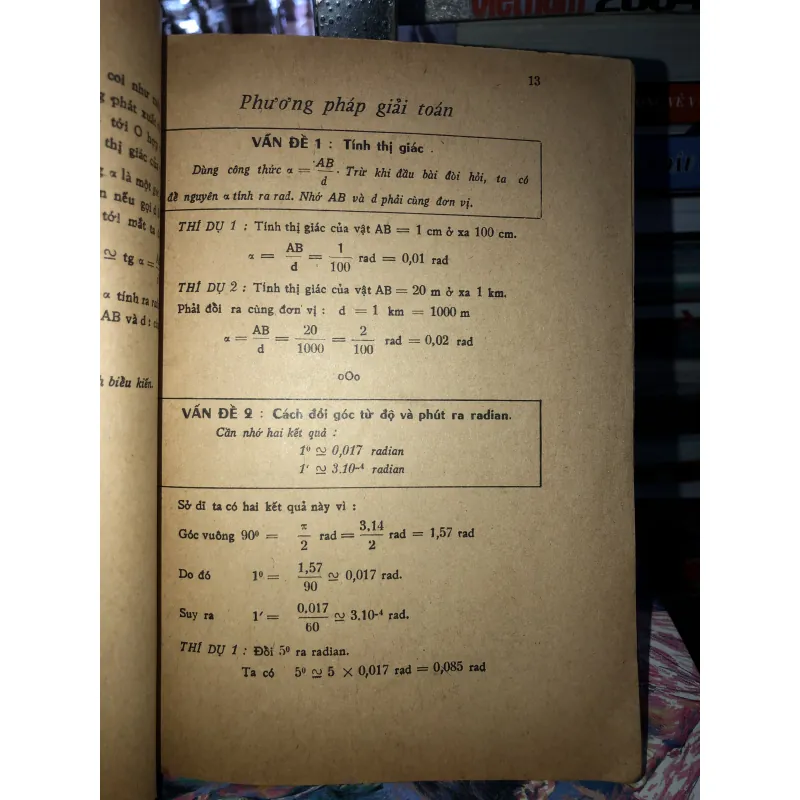 coi như
phát xuất
tới O
thị giác của
α là một
nếu gọi d
tới mắt ta
≃ tg α =
α tính ra
AB và d :
biểu kiến.
13
Phương pháp giải toán
VẤN ĐỀ 1 : Tính thị giác .
Dùng công thức α = AB/d . Trừ khi đầu bài đòi hỏi, ta có
để nguyên α tính ra rad. Nhớ AB và d phải cùng đơn vị.
THÍ DỤ 1 : Tính thị giác của vật AB = 1 cm ở xa 100 cm.
α = AB/d = 1/100 rad = 0,01 rad
THÍ DỤ 2 : Tính thị giác của vật AB = 20 m ở xa 1 km.
Phải đổi ra cùng đơn vị : d = 1 km = 1000 m
α = AB/d = 20/1000 = 2/100 rad = 0,02 rad
oOo
VẤN ĐỀ 2 : Cách đổi góc từ độ và phút ra radian.
Cần nhớ hai kết quả :
1⁰ ≃ 0,017 radian
1′ ≃ 3.10⁻⁴ radian
Sở dĩ ta có hai kết quả này vì :
Góc vuông 90⁰ = π/2 rad = 3,14/2 rad = 1,57 rad
Do đó 1⁰ = 1,57/90 ≃ 0,017 rad.
Suy ra 1′ = 0,017/60 ≃ 3.10⁻⁴ rad.
THÍ DỤ 1 : Đổi 5⁰ ra radian.
Ta có 5⁰ ≃ 5 × 0,017 rad = 0,085 rad